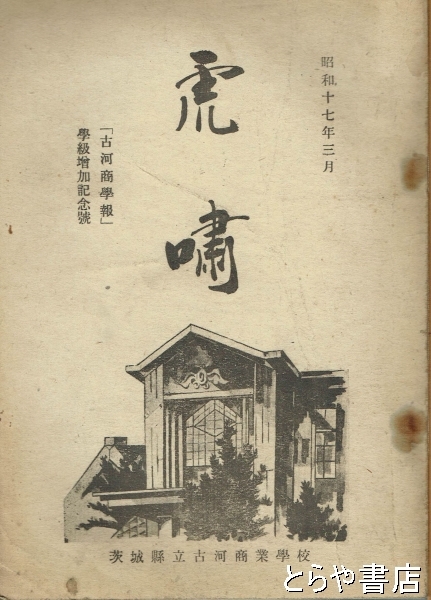 昭和十七年三月
虎嘯
「古河商學報」
學級增加記念號
茨城縣立古河商業學校
とらや書店